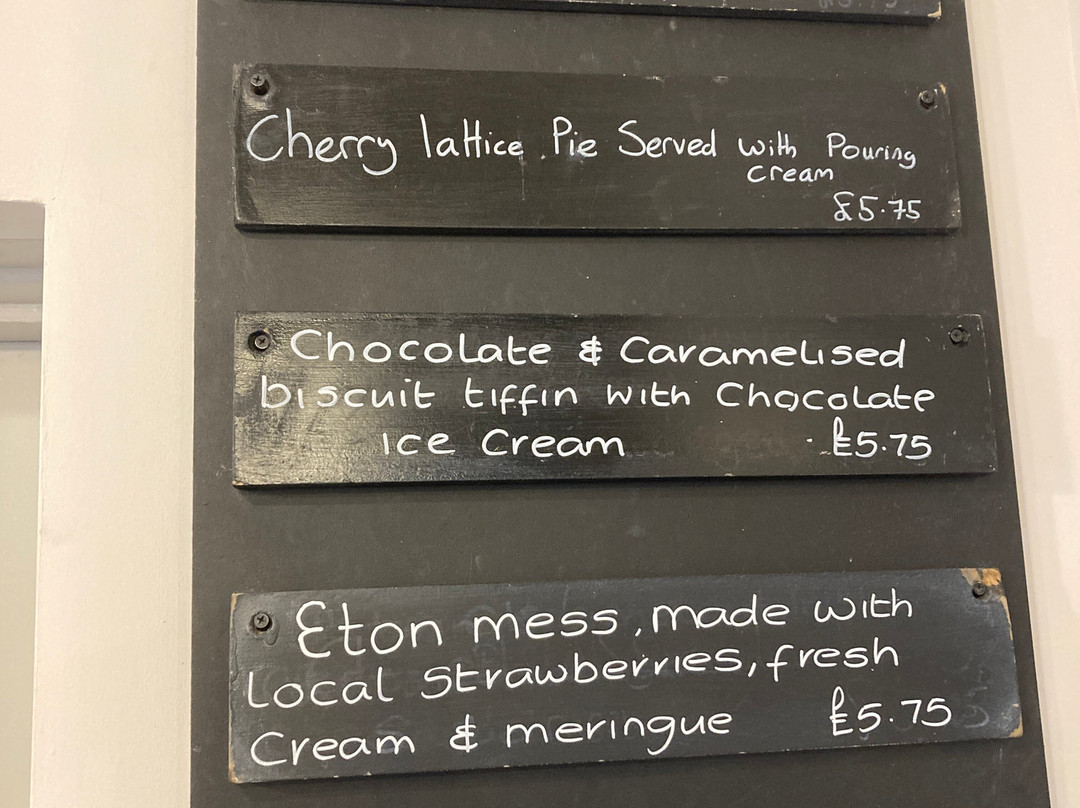 Cherry lattice Pie Served with Pouring
Cream
£5.75
Chocolate & Caramelised
biscuit tiffin with Chocolate
ice Cream £5.75
Eton mess, made with
Local Strawberries, fresh
Cream & meringue £5.75